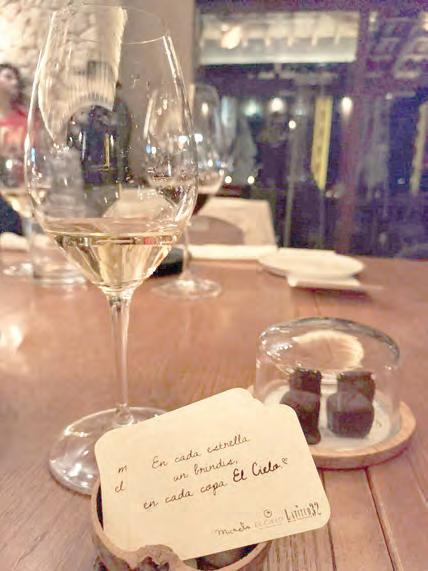 m
En cada estrella
el
un brindis,
en cada copa El Cielo.
EL CIELO